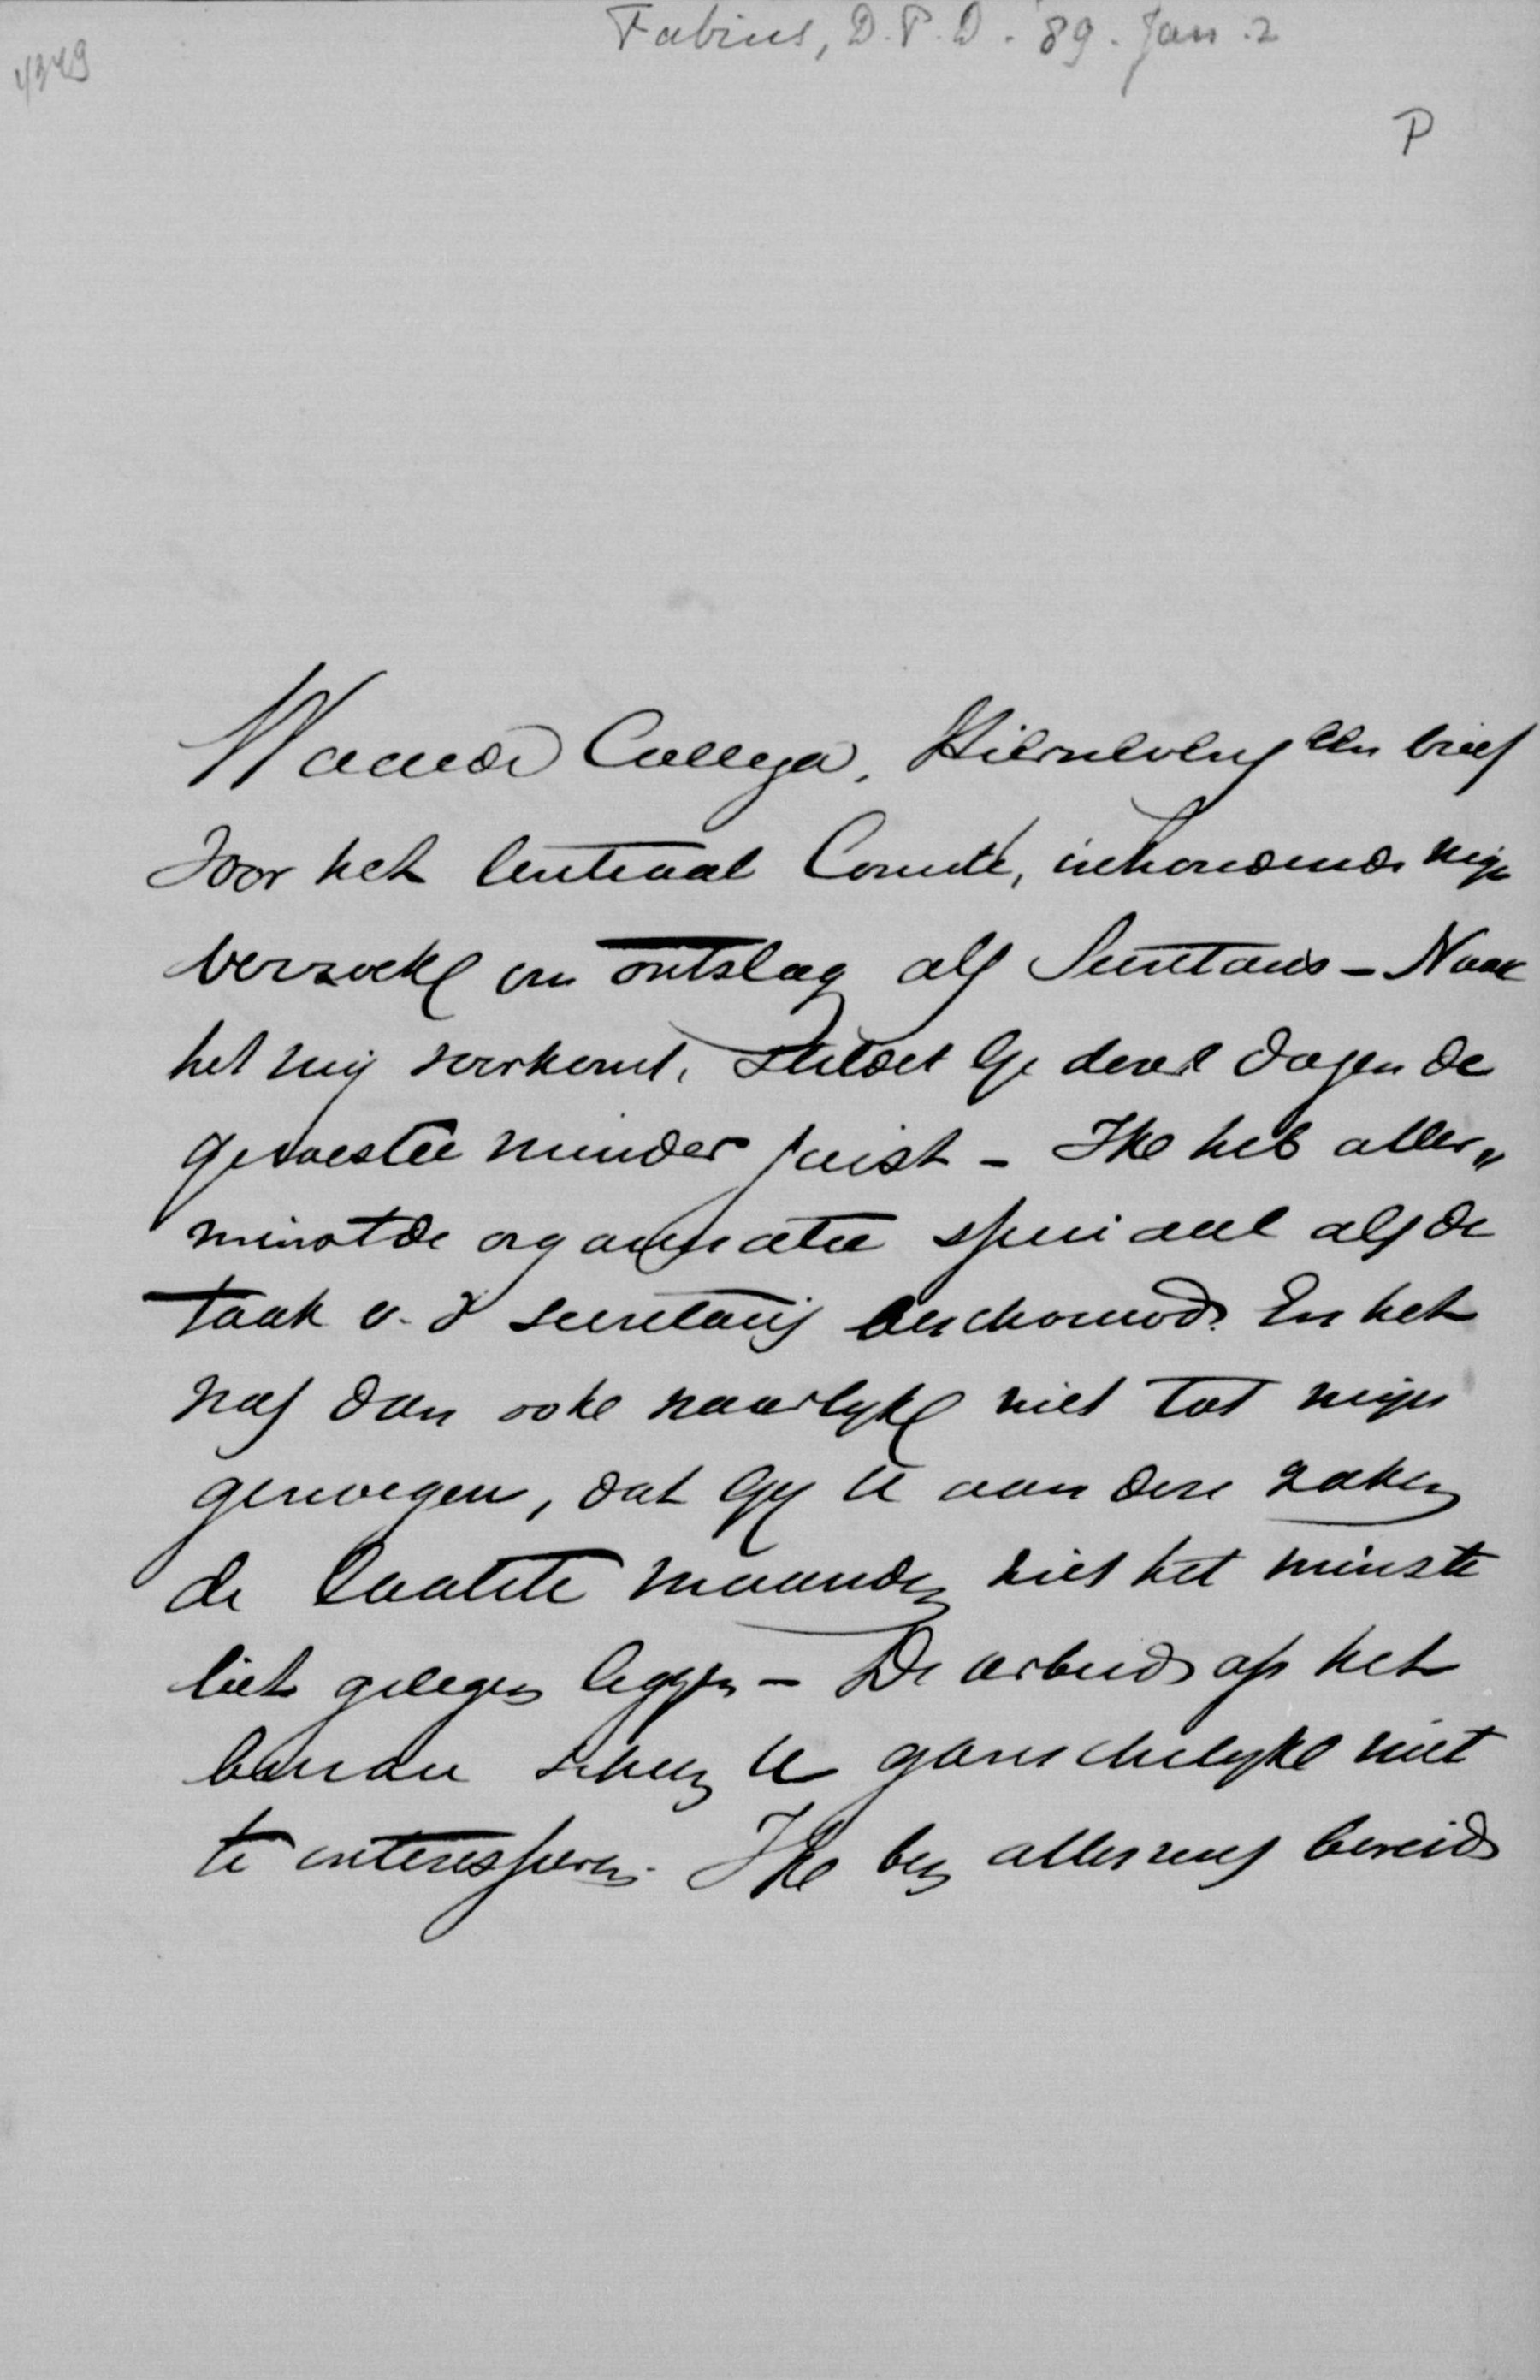 4349
Fabius, D.P.D. '89. Jan. 2
P
Waarde Collega, Hiernevens een brief
voor het Centraal Comité, inhoudende mijn
verzoek om ontslag als Secretaris - Naar
het mij voorkomt, schildet Ge dezer dagen de
quaestie minder juist - Ik heb aller„
minst de organisatie speciaal als de
taak v. d secretaris beschouwd. En het
was dan ook waarlijk niet tot mijn
genoegen, dat Gij U aan deze zaken
de laatste maanden niet het minste
liet gelegen leggen - De arbeid op het
bureau scheen U ganschelijk niet
te interesseren. Ik ben alleszins bereid